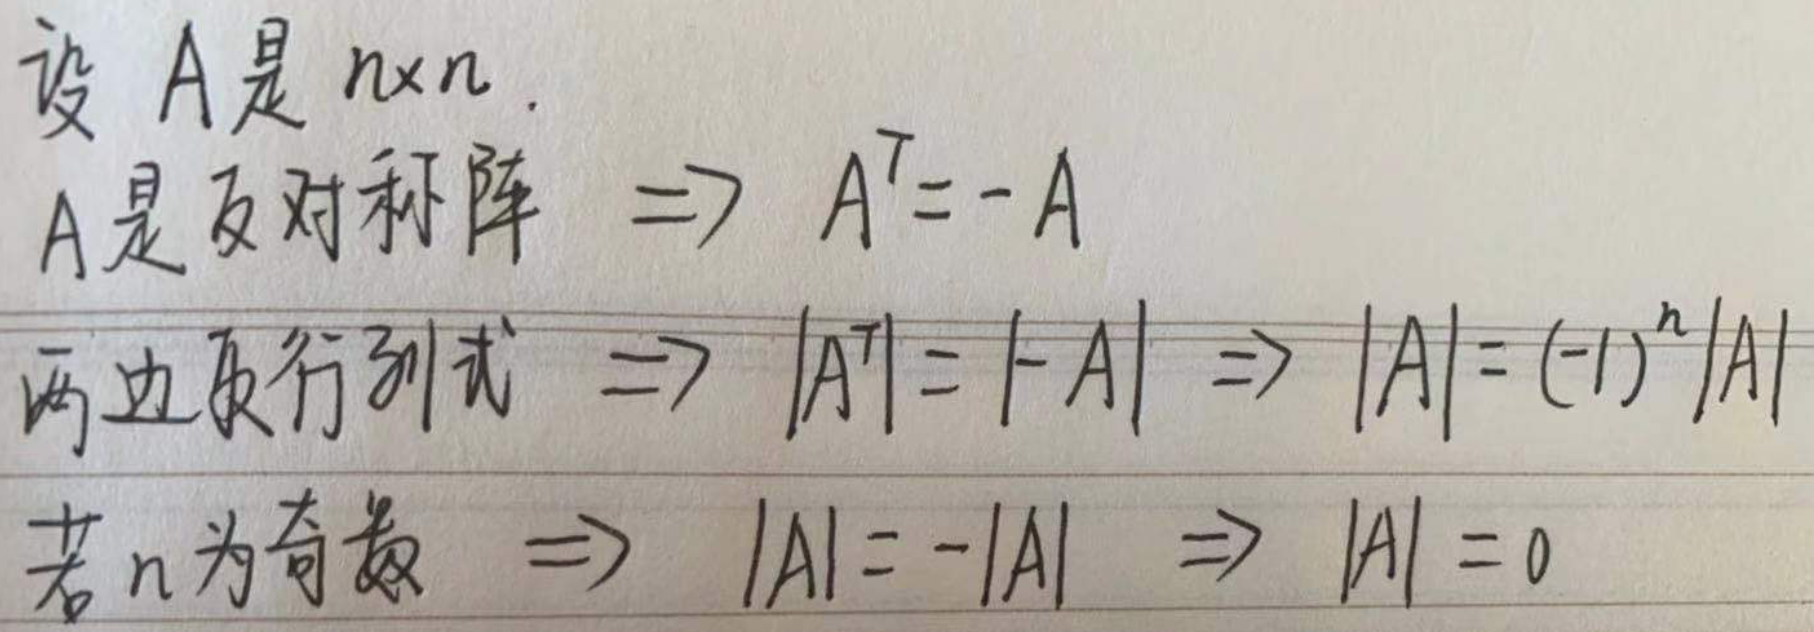 设 A是 n×n.
A是反对称阵 => Aᵀ = -A
两边取行列式 => |Aᵀ| = |-A| => |A| = (-1)ⁿ|A|
若n为奇数 => |A| = -|A| => |A| = 0